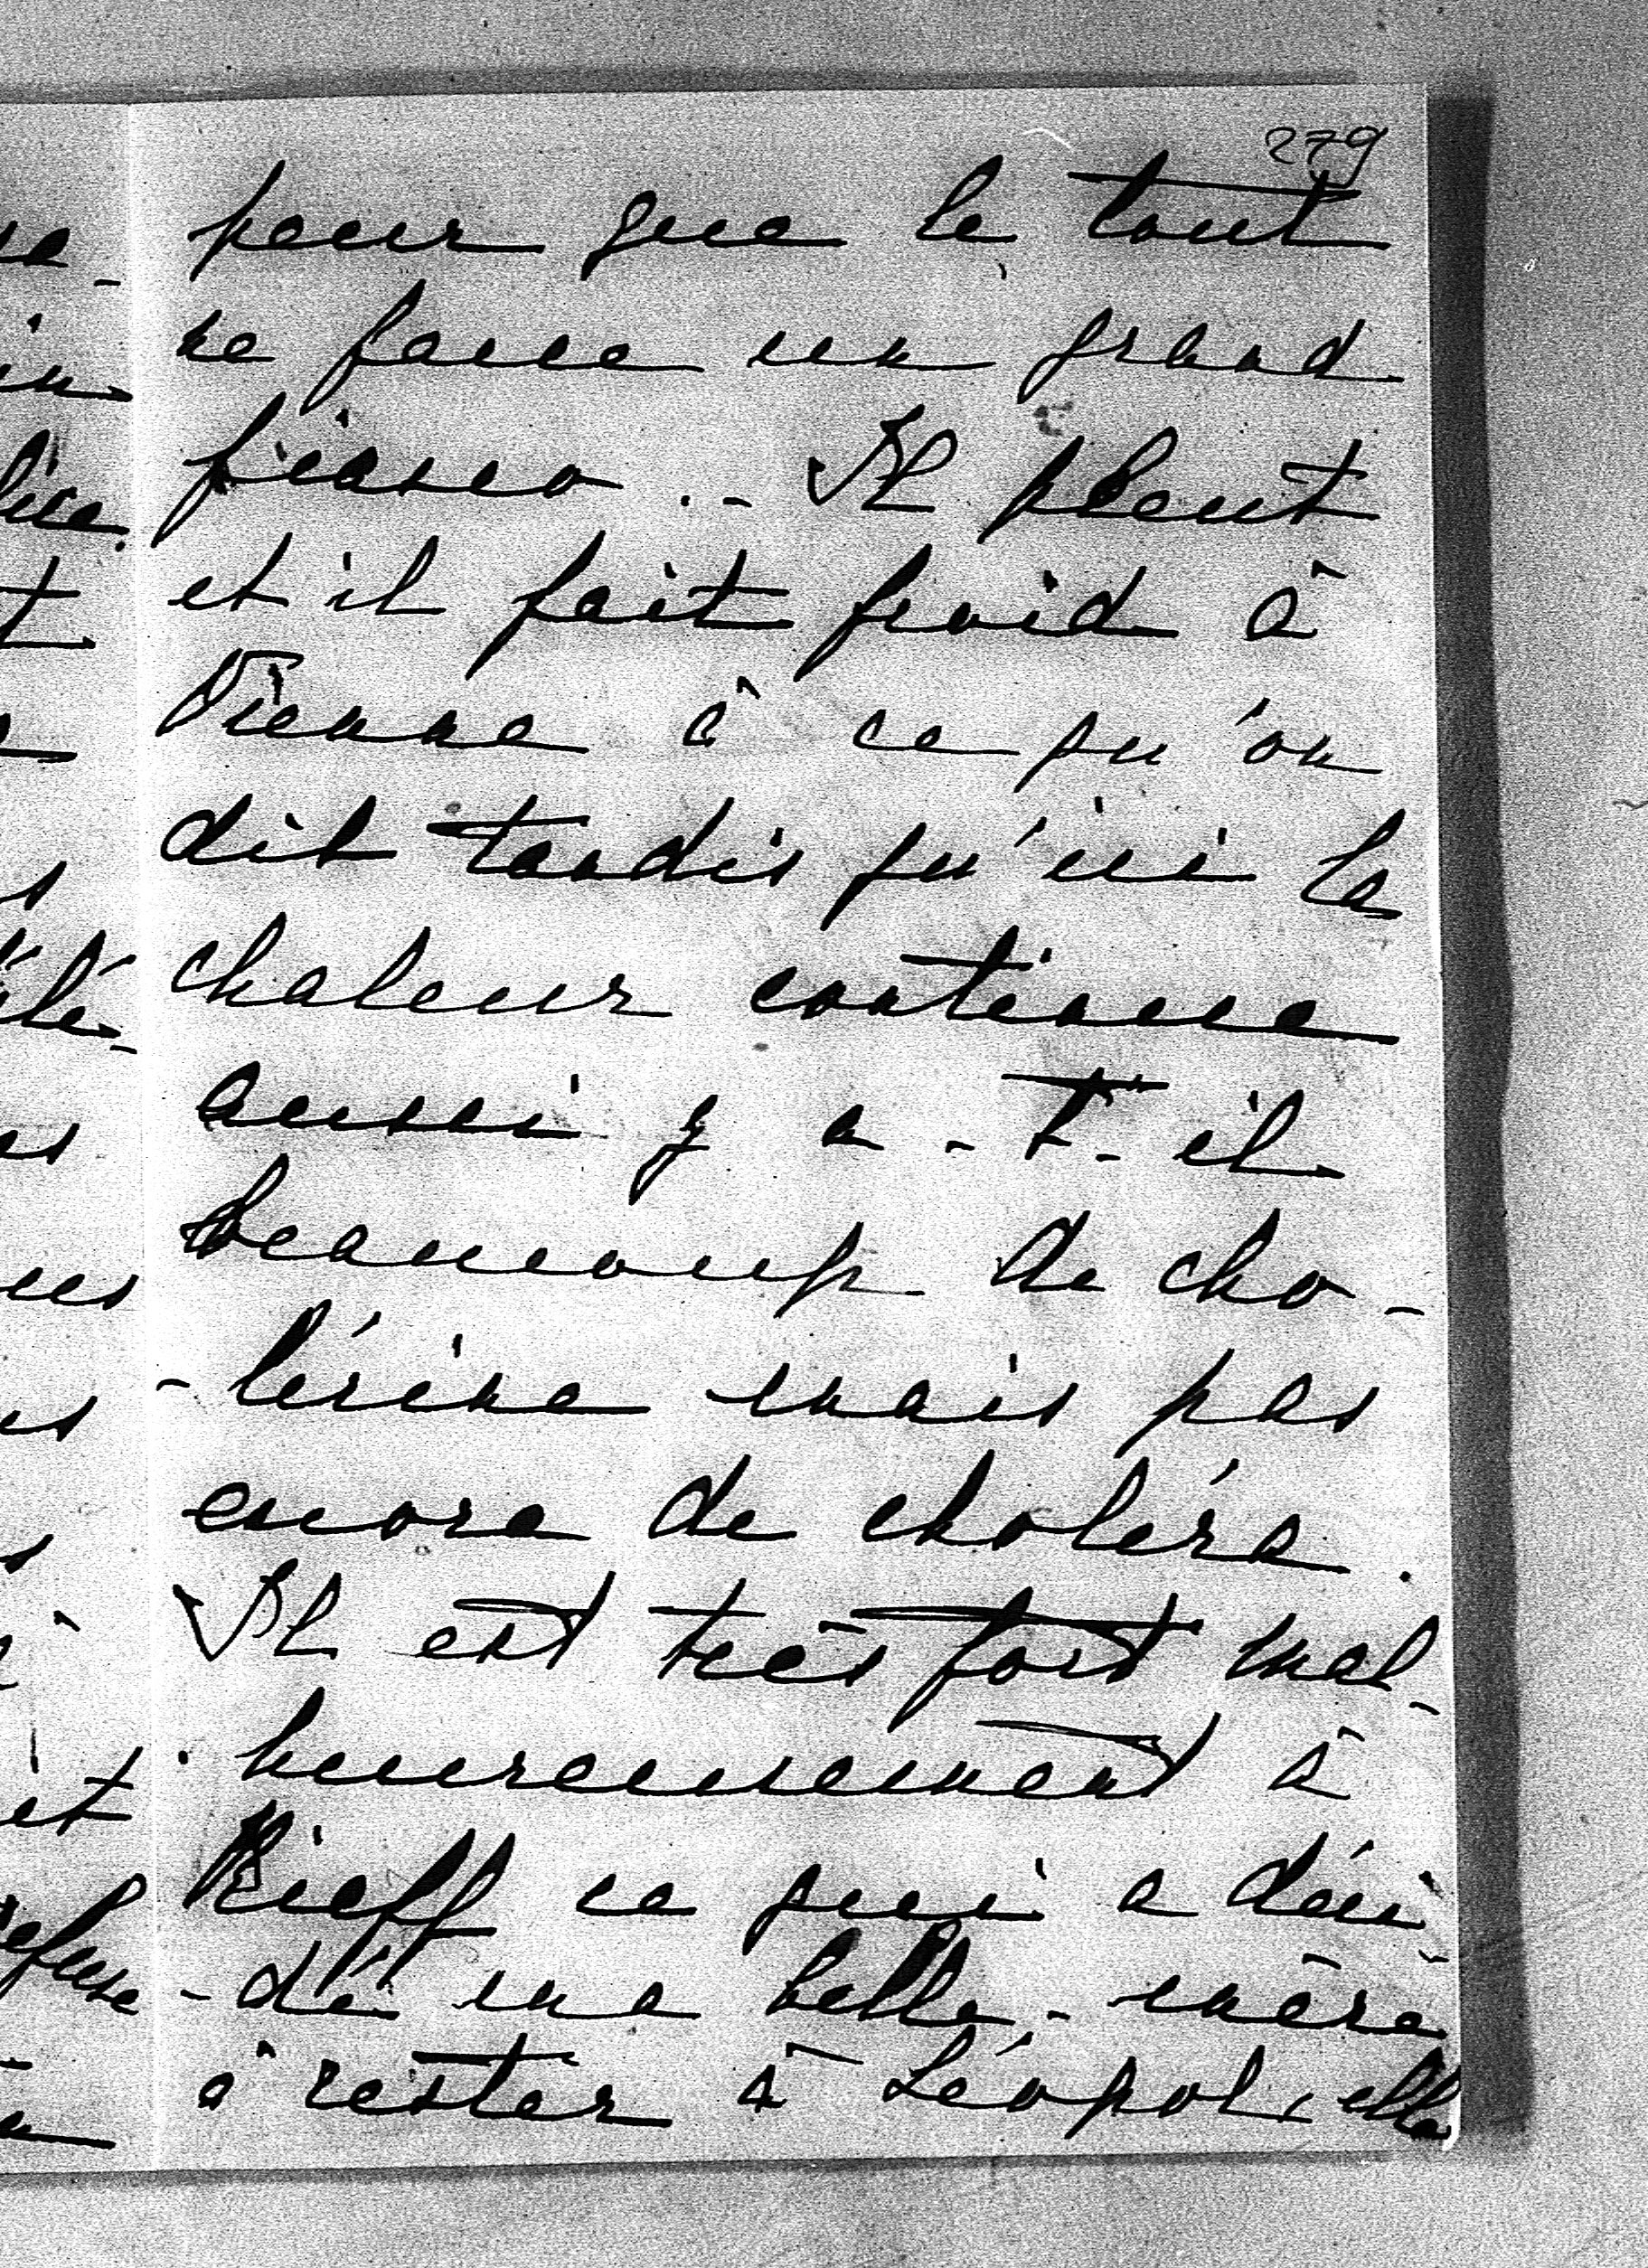 279
peur que le tout
ne fasse un grand
fiasco .. Il pleut
et il fait froid à
Vienne à ce qu'on
dit tandis qu'ici la
chaleur continue
aussi y a-t-il
beaucoup de cho-
-lérine mais pas
encore de choléra.
Il est très fort mal-
heureusement à
Kieff ce qui a déci-
-dé ma belle-mère
à rester à Léopol, elle